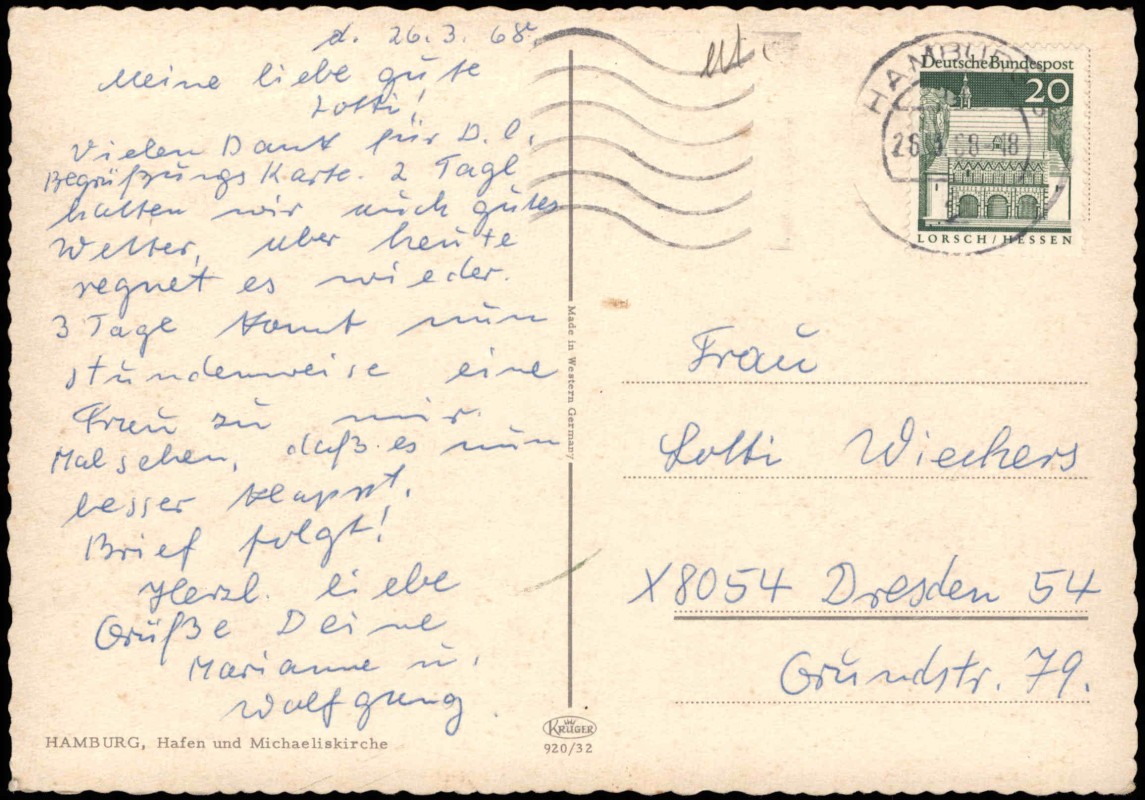 d. 26.3.68.
Meine liebe gute
Lotti!
Vielen Dank für D. l.
Begrüßungs Karte. 2 Tage
hatten wir auch gutes
Wetter, aber heute
regnet es wieder.
3 Tage kommt nun
stundenweise eine
Frau zu mir.
Mal sehen, daß es nun
besser klappt.
Brief folgt!
Herzl. liebe
Grüße Deine
Marianne u.
Wolfgang
HAMBURG, Hafen und Michaeliskirche
Made in Western Germany
KRÜGER
920/32
HAMBURG
26.3.68-18
Deutsche Bundespost
20
LORSCH/HESSEN
Frau
Lotti Wiechers
X8054 Dresden 54
Grundstr. 79.